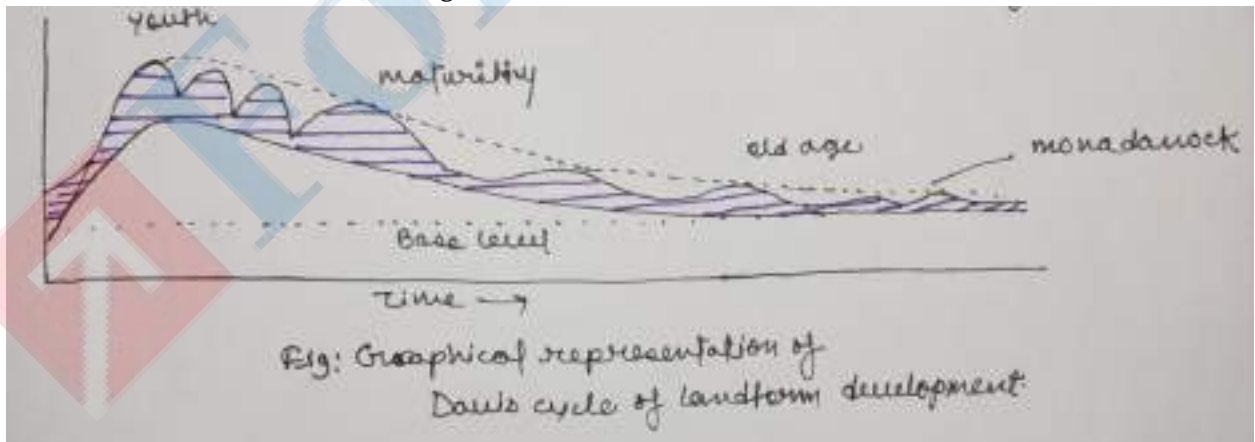 youth
maturithy
old age
monadanock
Base level
Time →
Fig: Graphical representation of
Davis cycle of landform development.